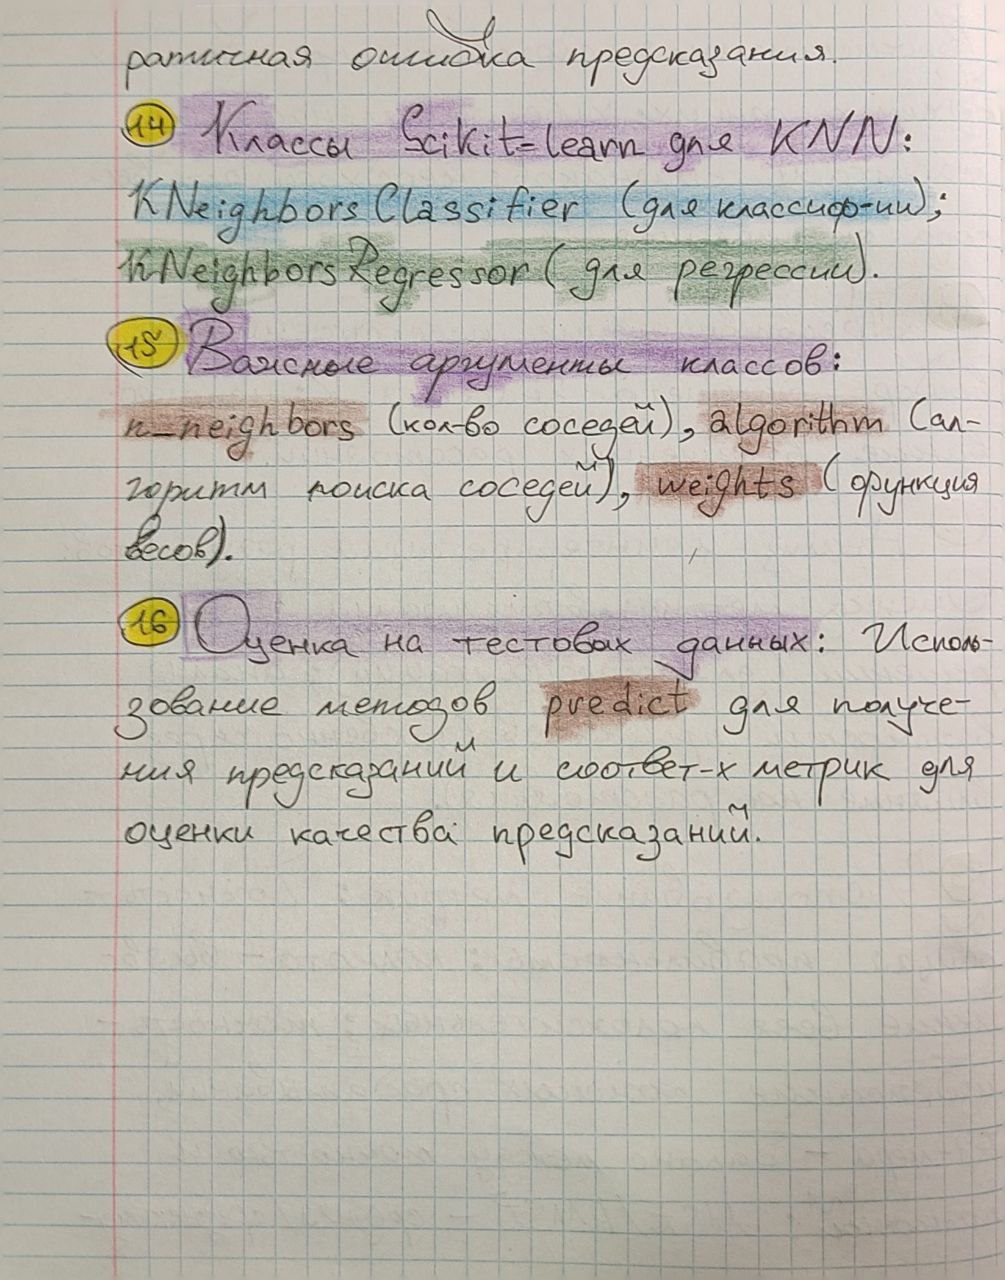 ратичная ошибка предсказания.
14 Классы Scikit-learn для KNN:
KNeighborsClassifier (для классиф-ии);
KNeighborsRegressor (для регрессии).
15 Важные аргументы классов:
n_neighbors (кол-во соседей), algorithm (ал-
горитм поиска соседей), weights (функция
весов).
16 Оценка на тестовых данных: Исполь-
зование методов predict для получе-
ния предсказаний и соответ-х метрик для
оценки качества предсказаний.